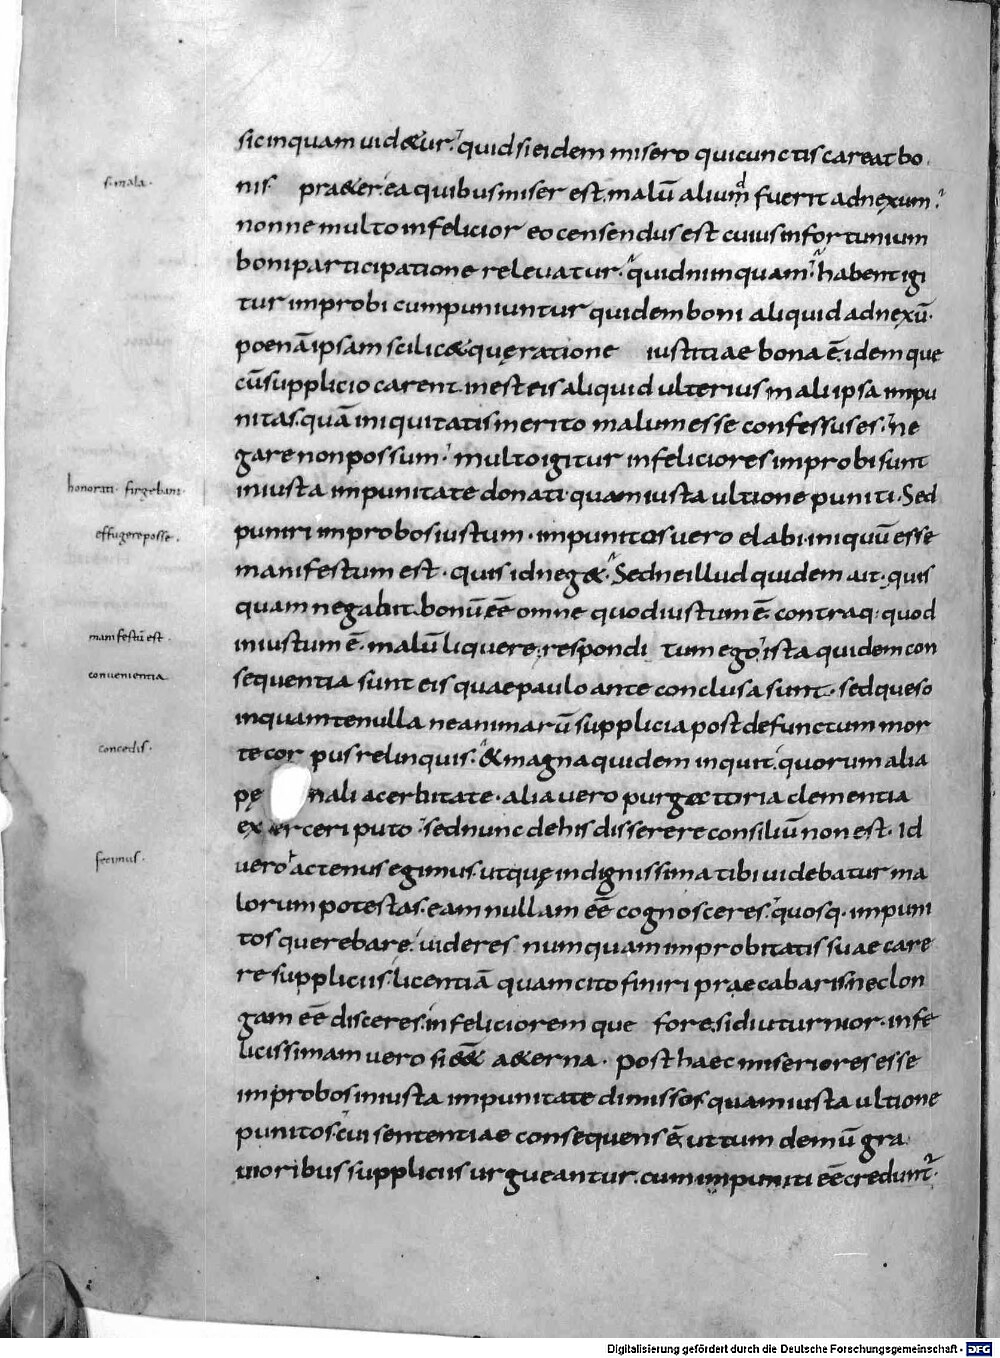 sic inquam uid&ur. quid si eidem misero qui cunctis careat bo
.s. mala.
nis pra&er ea quibus miser est. malū aliud fuerit adnexum.
nonne multo infelicior eo censendus est cuius infortunium
boni participatione releuatur. quidni inquam. habent igi
tur improbi cum puniuntur quidem boni aliquid adnexū.
poenā ipsam scilic& quę ratione iustitiae bona ē. idemque
cū supplicio carent. inest eis aliquid ulterius mali ipsa impu
nitas. quā iniquitatis merito malum esse confessus es. ne
gare non possum. multo igitur infeliciores improbi sunt
honorati. firgebani.
iniusta impunitate donati. quam iusta ultione puniti. Sed
effugere posse.
puniri improbos iustum. impunitos uero elabi. iniquū esse
manifestum est. quis id neg&. Sed ne illud quidem ait. quis
quam negabit. bonū eē omne quod iustum ē. contraq: quod
manifestū est.
iniustum ē. malū liquere. respondi tum ego. ista quidem con
conuenientia
sequentia sunt eis quae paulo ante conclusa sunt. sed queso
inquam te nulla ne animarū supplicia post defunctum mor
concedis.
te corpus relinquis. & magna quidem inquit. quorum alia
pę nali acerbitate. alia uero purgatoria clementia
exerceri puto. sed nunc de his disserere consiliū non est. Id
fecimus.
uero actenus egimus. ut quę indignissima tibi uidebatur ma
lorum potestas. eam nullam eē cognosceres. quosq. impuni
tos querebare. uideres numquam improbitatis suae care
re suppliciis. licentiā quam cito finiri praecabaris. nec lon
gam eē disceres. infelicioremque fore. si diuturnior. infe
licissimam uero si e&& a&erna. Post haec miseriores esse
improbos iniusta impunitate dimissos quam iusta ultione
punitos. cui sententiae consequens ē. ut tum demū gra
uioribus suppliciis urgueantur. cum impuniti eē credunt.